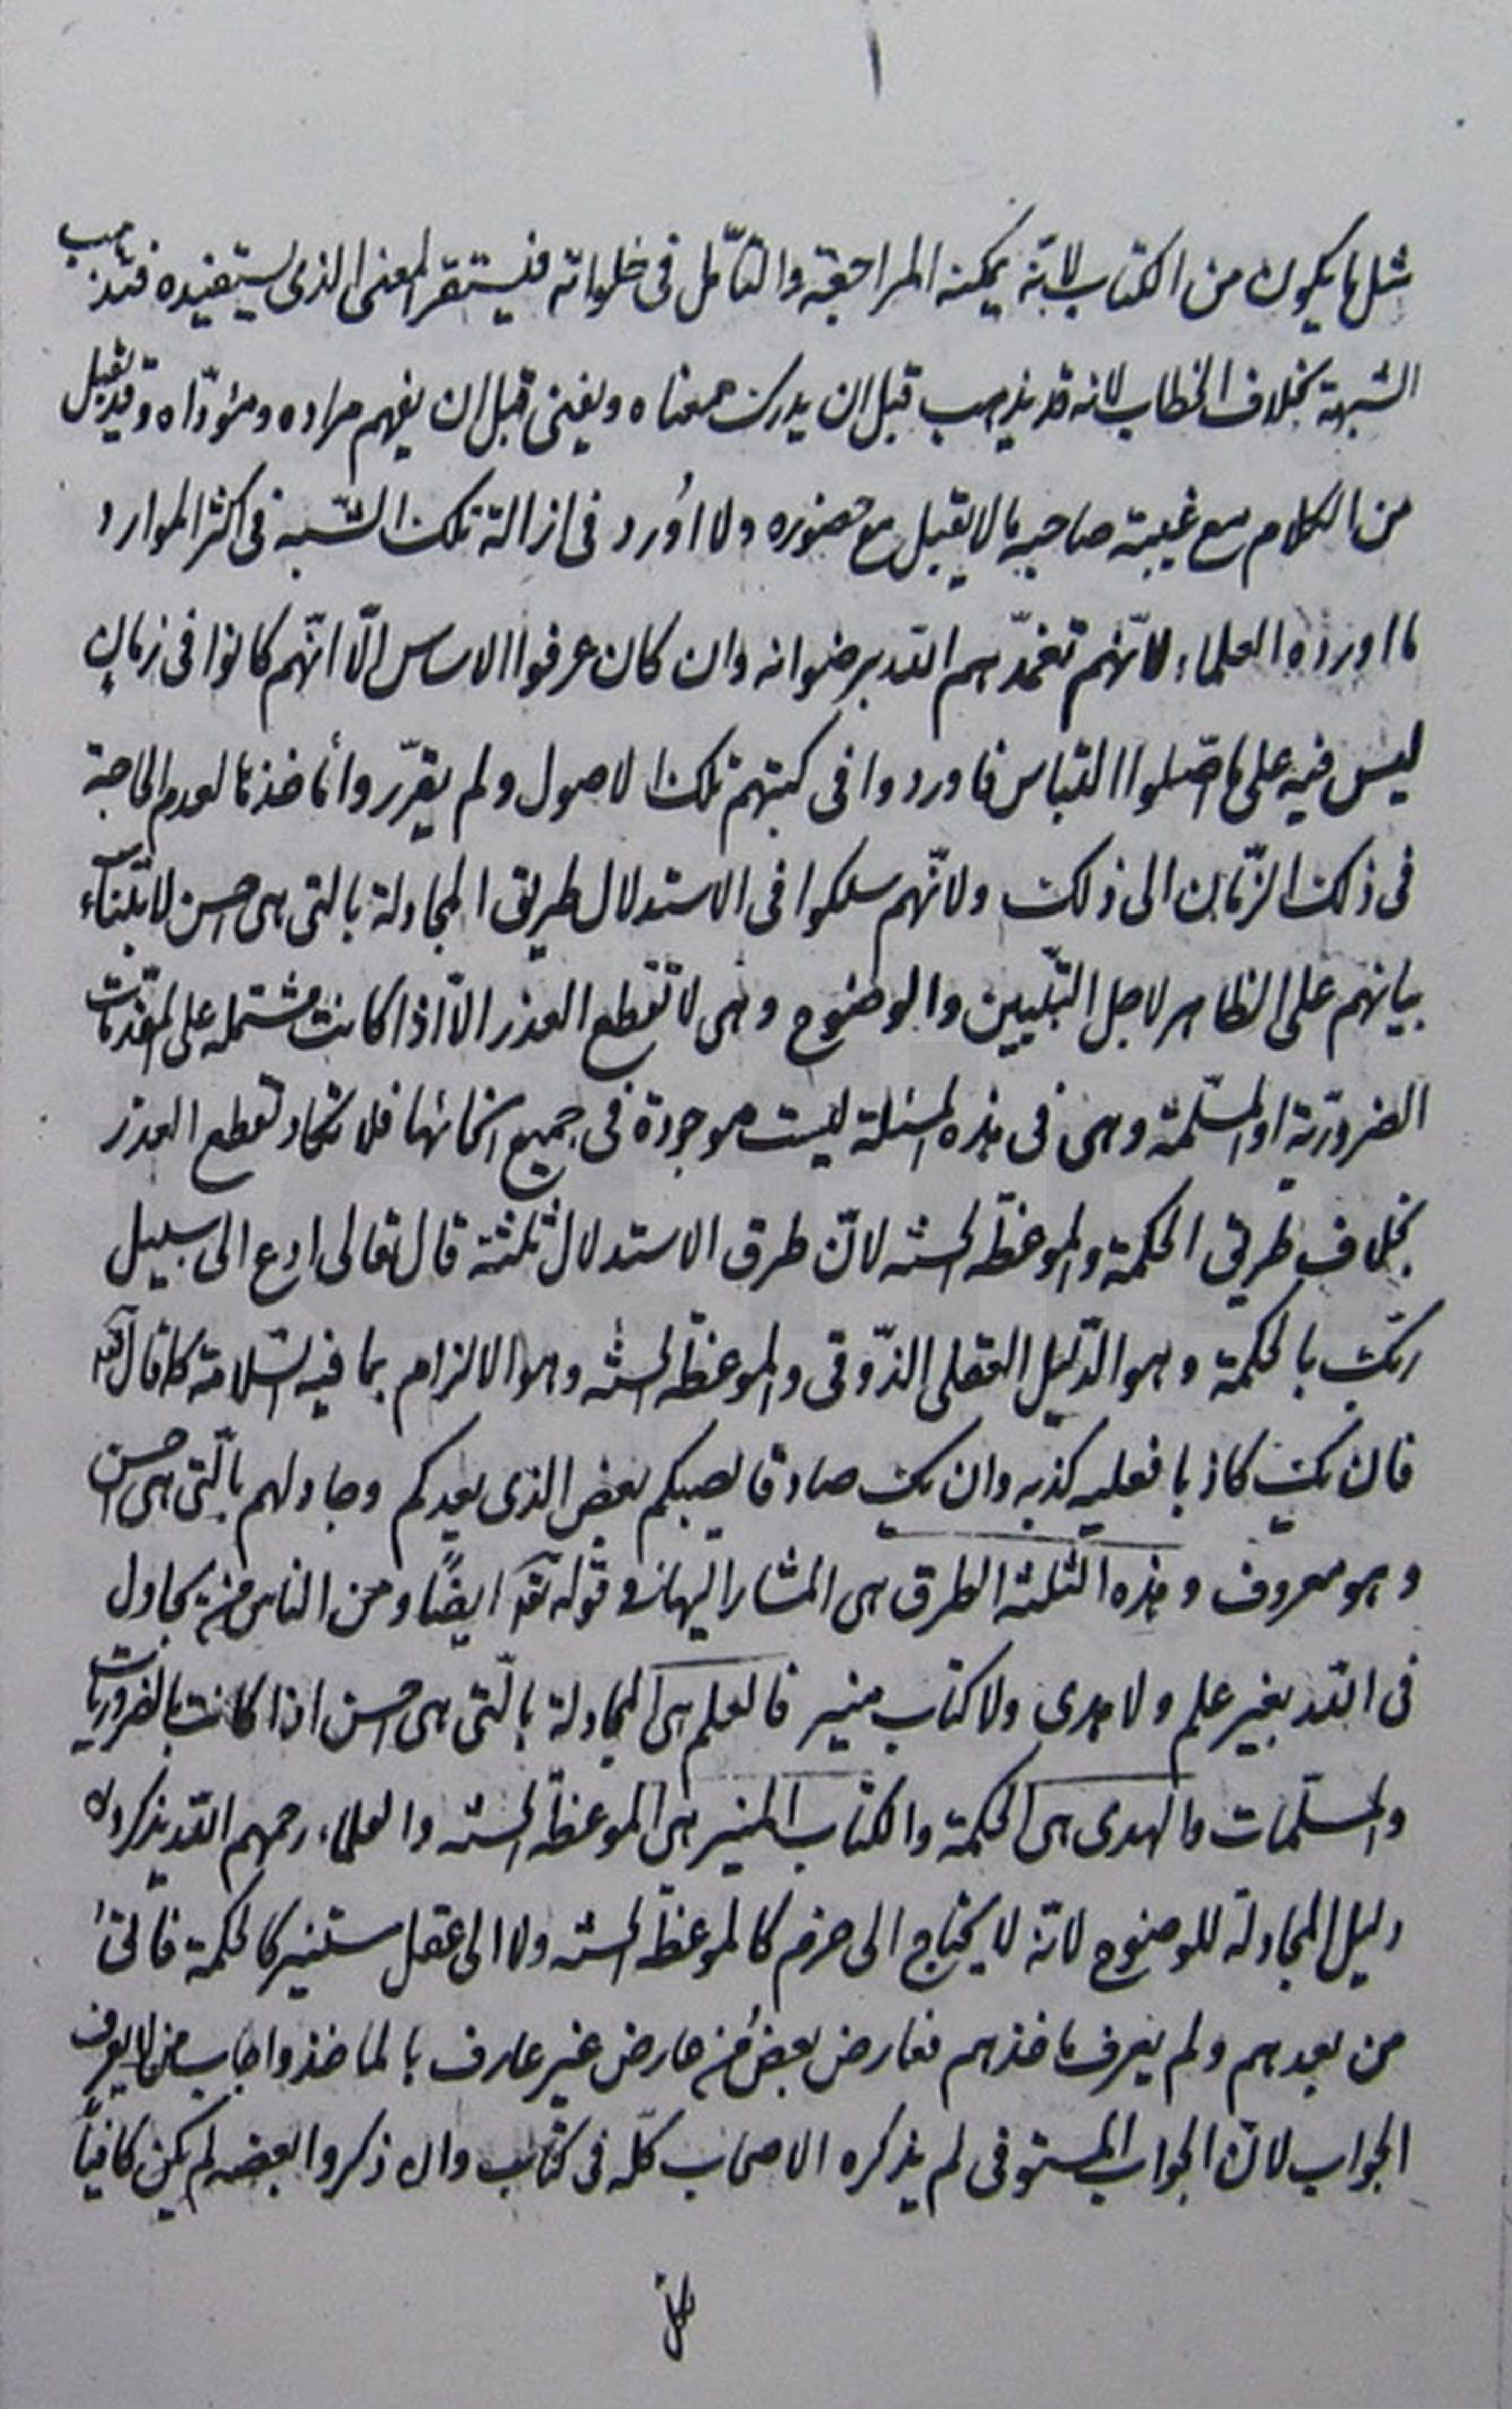 مثل ما يكون من الكتاب لانّه يمكنه المراجعة والتأمّل فى خلواته فيستقر المعنى الذى يستفيده فتذهب
الشبهة بخلاف الخطاب لانه قد يذهب قبل ان يدرك معناه ويفنى قبل ان يفهم مراده ومؤدّاه وقد يقبل
من الكلام مع غيبة صاحبه ما لا يقبل مع حضوره ولا اُورد فى ازالة تلك الشّبه فى اكثر الموارد
ما اورده العلماء لانّهم تغمّدهم اللّه برضوانه وان كان عرفوا الاساس الّا انّهم كانوا فى زمانٍ
ليس فيه على ما اصّلوا التباس فاوردوا فى كتبهم تلك الاصول ولم يقرّروا مأخذها لعدم الحاجة
فى ذلك الزّمان الى ذلك ولانّهم سلكوا فى الاستدلال طريق المجادلة بالتى هى احسن لابتناء
بيانهم على الظاهر لاجل التبيين والوضوح وهى لا تقطع العذر الّا اذا كانت مشتمله على المقدّمات
الضروريّة او المسلّمة وهى فى هذه المسئلة ليست موجودة فى جميع انحائها فلا تكاد تقطع العذر
بخلاف طريقى الحكمة والموعظة الحسنه لانّ طرق الاستدلال ثلثة قال تعالى ادع الى سبيل
ربّك بالحكمة وهو الدّليل العقلى الذّوقى والموعظة الحسنه وهو الالزام بما فيه السّلامة كما قال تعه
فان يك كاذبا فعليه كذبه وان يك صادقا يصبكم بعض الذى يعدكم وجادلهم بالّتى هى احسن
وهو معروف وهذه الثلثة الطرق هى المشار اليها فى قوله تعه ايضًا ومن الناس من يجادل
فى اللّه بغير علم ولا هدى ولا كتاب منير فالعلم هى المجادلة بالّتى هى احسن اذا كانت بالضروريات
والمسلّمات والهدى هى الحكمة والكتاب المنير هى الموعظة الحسنه والعلماء رحمهم اللّه يذكرون
دليل المجادلة للوضوح لانّه لا يحتاج الى حزم كالموعظة الحسنه ولا الى عقل مستنير كالحكمة فاتى
من بعدهم ولم يعرف ماخذهم فعارض بعضُ من عارض غير عارف بالماخذ واجاب من لا يعرف
الجواب لانّ الجواب المستوفى لم يذكره الاصحاب كلّه فى كتاب وان ذكروا بعضه لم يكن كافياً